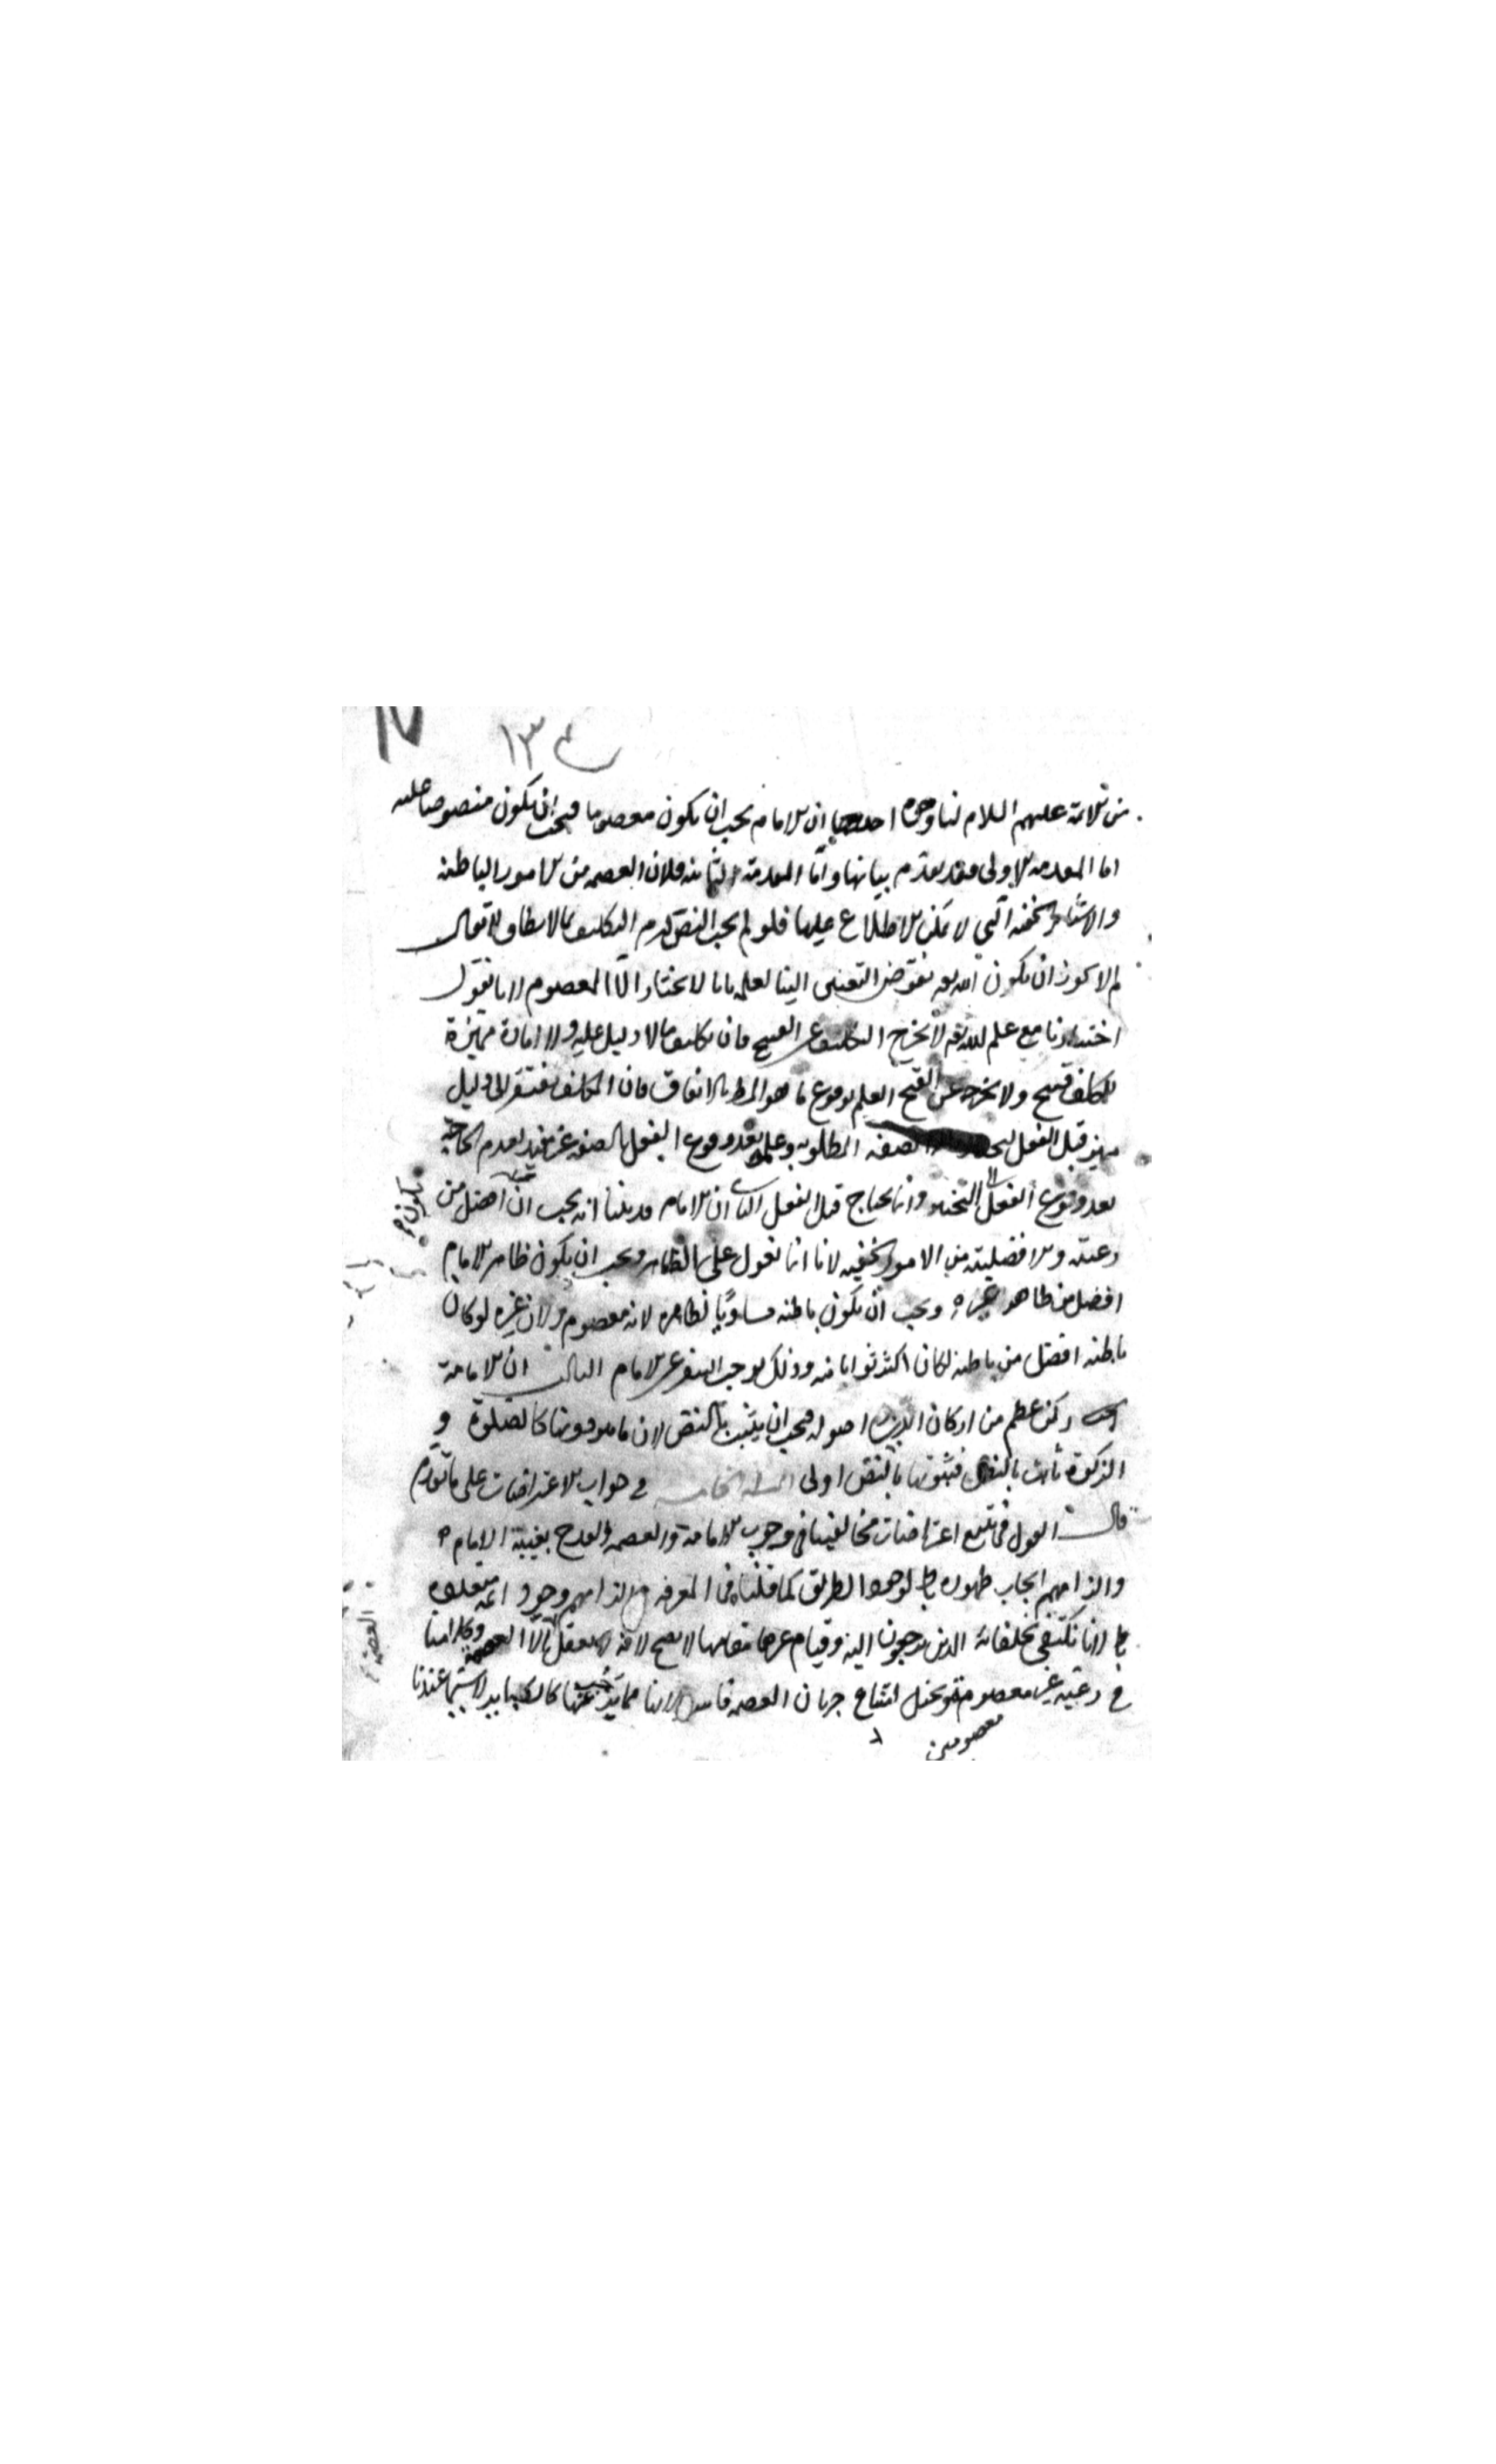 ١٣
من الائمة عليهم السلام لنا وجوه احدها ان الامام يجب ان يكون معصوما فيجب ان يكون منصوصا عليه
اما المقدمة الاولى فقد تقدم بيانها واما المقدمة الثانية فلان العصمة من الامور الباطنه
والاشياء الخفية التي لا يمكن الاطلاع عليها فلو لم يجب النص لزم التكليف بما لا يطاق لا يقال
لم لا يجوز ان يكون الله تعه يفوض التعيين الينا لعلمه بانا لا نختار الا المعصوم لانا نقول
اختيارنا مع علم الله تعه لا يخرج التكليف عن القبح فان تكليف ما لا دليل عليه ولا امارة مميزة
للمكلف قبيح ولا يخرجه عن القبح العلم بوقوع ما هو المط بالاتفاق فان المكلف يفتقر الى دليل
يميز قبل الفعل الصفه المطلوبه وعلمه بعد وقوع الفعل بالصفه غير مفيد لعدم الحاجة
بعد وقوع الفعل الى التمييز وانما يحتاج قبل الفعل الثاني ان الامام قد بينا انه يجب ان يكون افضل من
رعيته والافضلية من الامور الخفيه لانا انما نعول على الظاهر ويجب ان يكون ظاهر الامام
افضل من ظاهر غيره ويجب ان يكون باطنه مساويا لظاهره لانه معصوم ولان غيره لو كان
باطنه افضل من باطنه لكان اكثر ثوابا منه وذلك يوجب التنفر عن الامام الثالث ان الامامة
ركن عظيم من اركان الدين اصوله فيجب ان يثبت بالنص لان ما هو دونها كالصلوة و
الزكوة ثابت بالنص فثبوتها بالنص اولى المسئلة الخامسة في جواب الاعتراضات على ما تقدم
قال القول في تتبع اعتراضات مخالفينا في وجوب الامامة والعصمة والقدح بغيبة الامام
والزامهم ايجاب ظهوره بط لوجود الطريق كما قلناه في المعرفه والزامهم وجود ائمة متعددة
بط لانا نكتفي بخلفائه الذين يرجعون اليه وقيام غيرها مقامها لا يصح لانه لا يعقل الا العصمة وكلامنا
في رعية غير معصومة جريان العصمة
معصومين
العصمة